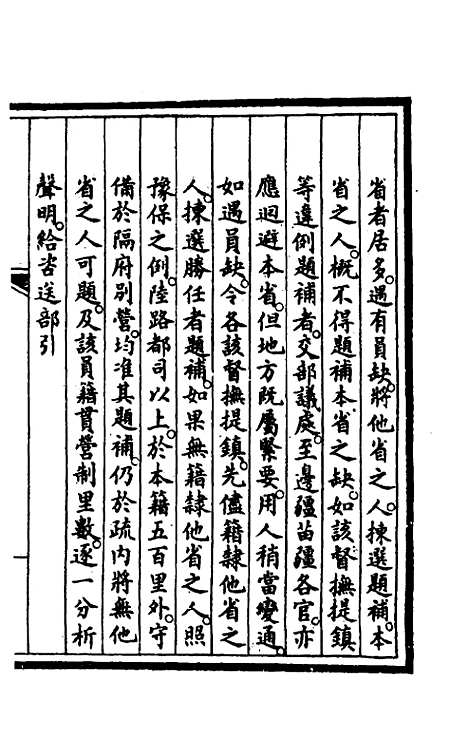 省者居多。遇有員缺。將他省之人。揀選題補。本
省之人。概不得題補本省之缺。如該督撫提鎮
等違例題補者。交部議處。至邊疆苗疆各官。亦
應迴避本省。但地方既屬緊要。用人稍當變通。
如遇員缺。令各該督撫提鎮。先儘籍隸他省之
人。揀選勝任者題補。如果無籍隸他省之人。照
豫保之例。陸路都司以上。於本籍五百里外。守
備於隔府別營。均准其題補。仍於疏內將無他
省之人可題。及該員籍貫營制里數。逐一分析
聲明。給咨送部引